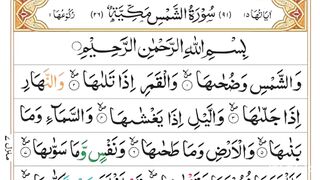 اٰيَاتُهَا ١٥ (٩١) سُوْرَةُ الشَّمْسِ مَكِّيَّةٌ (٢٦) رُكُوْعُهَا ١
بِسْمِ اللهِ الرَّحْمٰنِ الرَّحِيْمِ
وَالشَّمْسِ وَضُحٰىهَا ۝ وَالْقَمَرِ اِذَا تَلٰىهَا ۝ وَالنَّهَارِ
اِذَا جَلّٰىهَا ۝ وَالَّيْلِ اِذَا يَغْشٰىهَا ۝ وَالسَّمَآءِ وَمَا
بَنٰىهَا ۝ وَالْاَرْضِ وَمَا طَحٰىهَا ۝ وَنَفْسٍ وَّمَا سَوّٰىهَا ۝